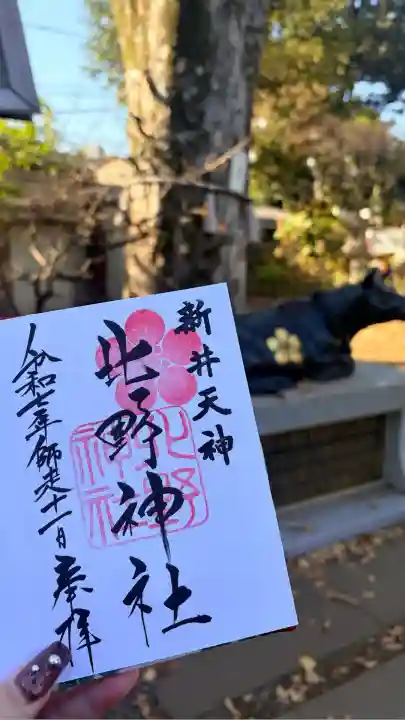 新井天神
北野神社
北野
神社
令和七年師走十一日 奉拝